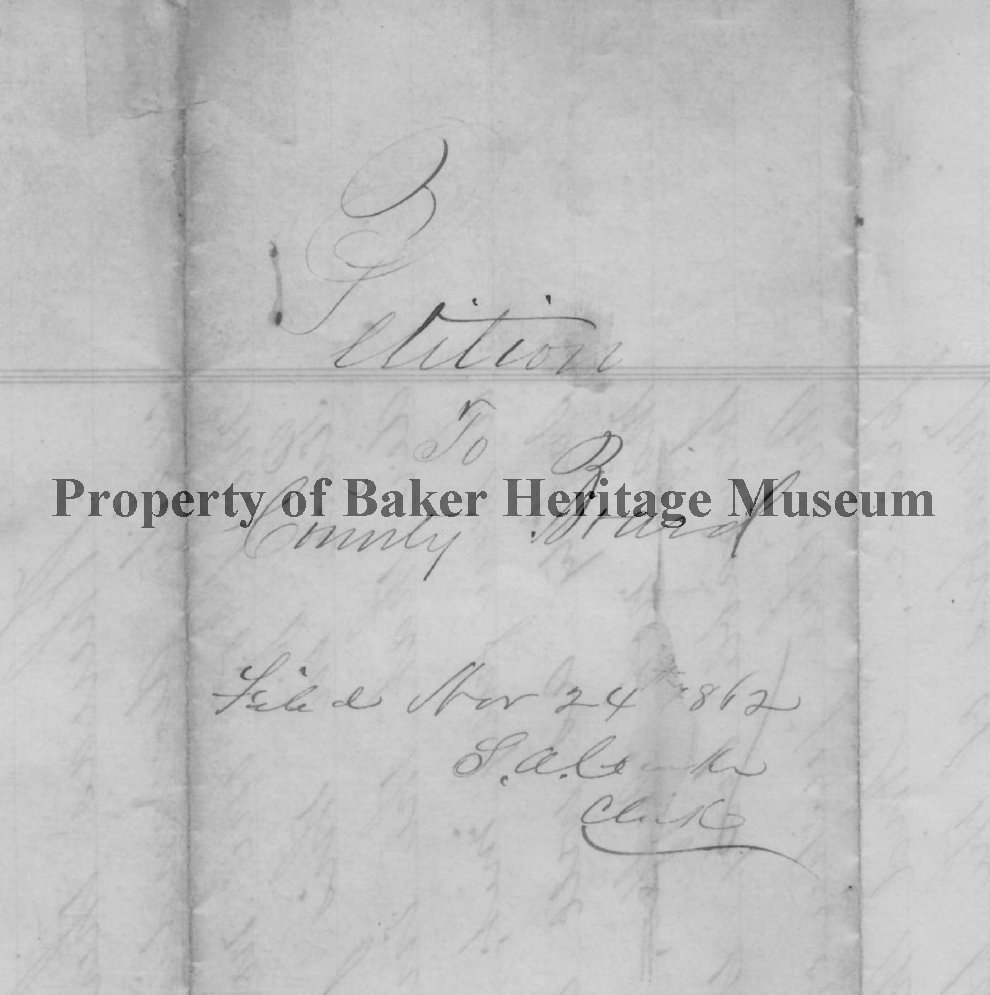 Petition
To
Property of Baker Heritage Museum
County Board
Filed Nov 24th 1862
S. A.
Clerk